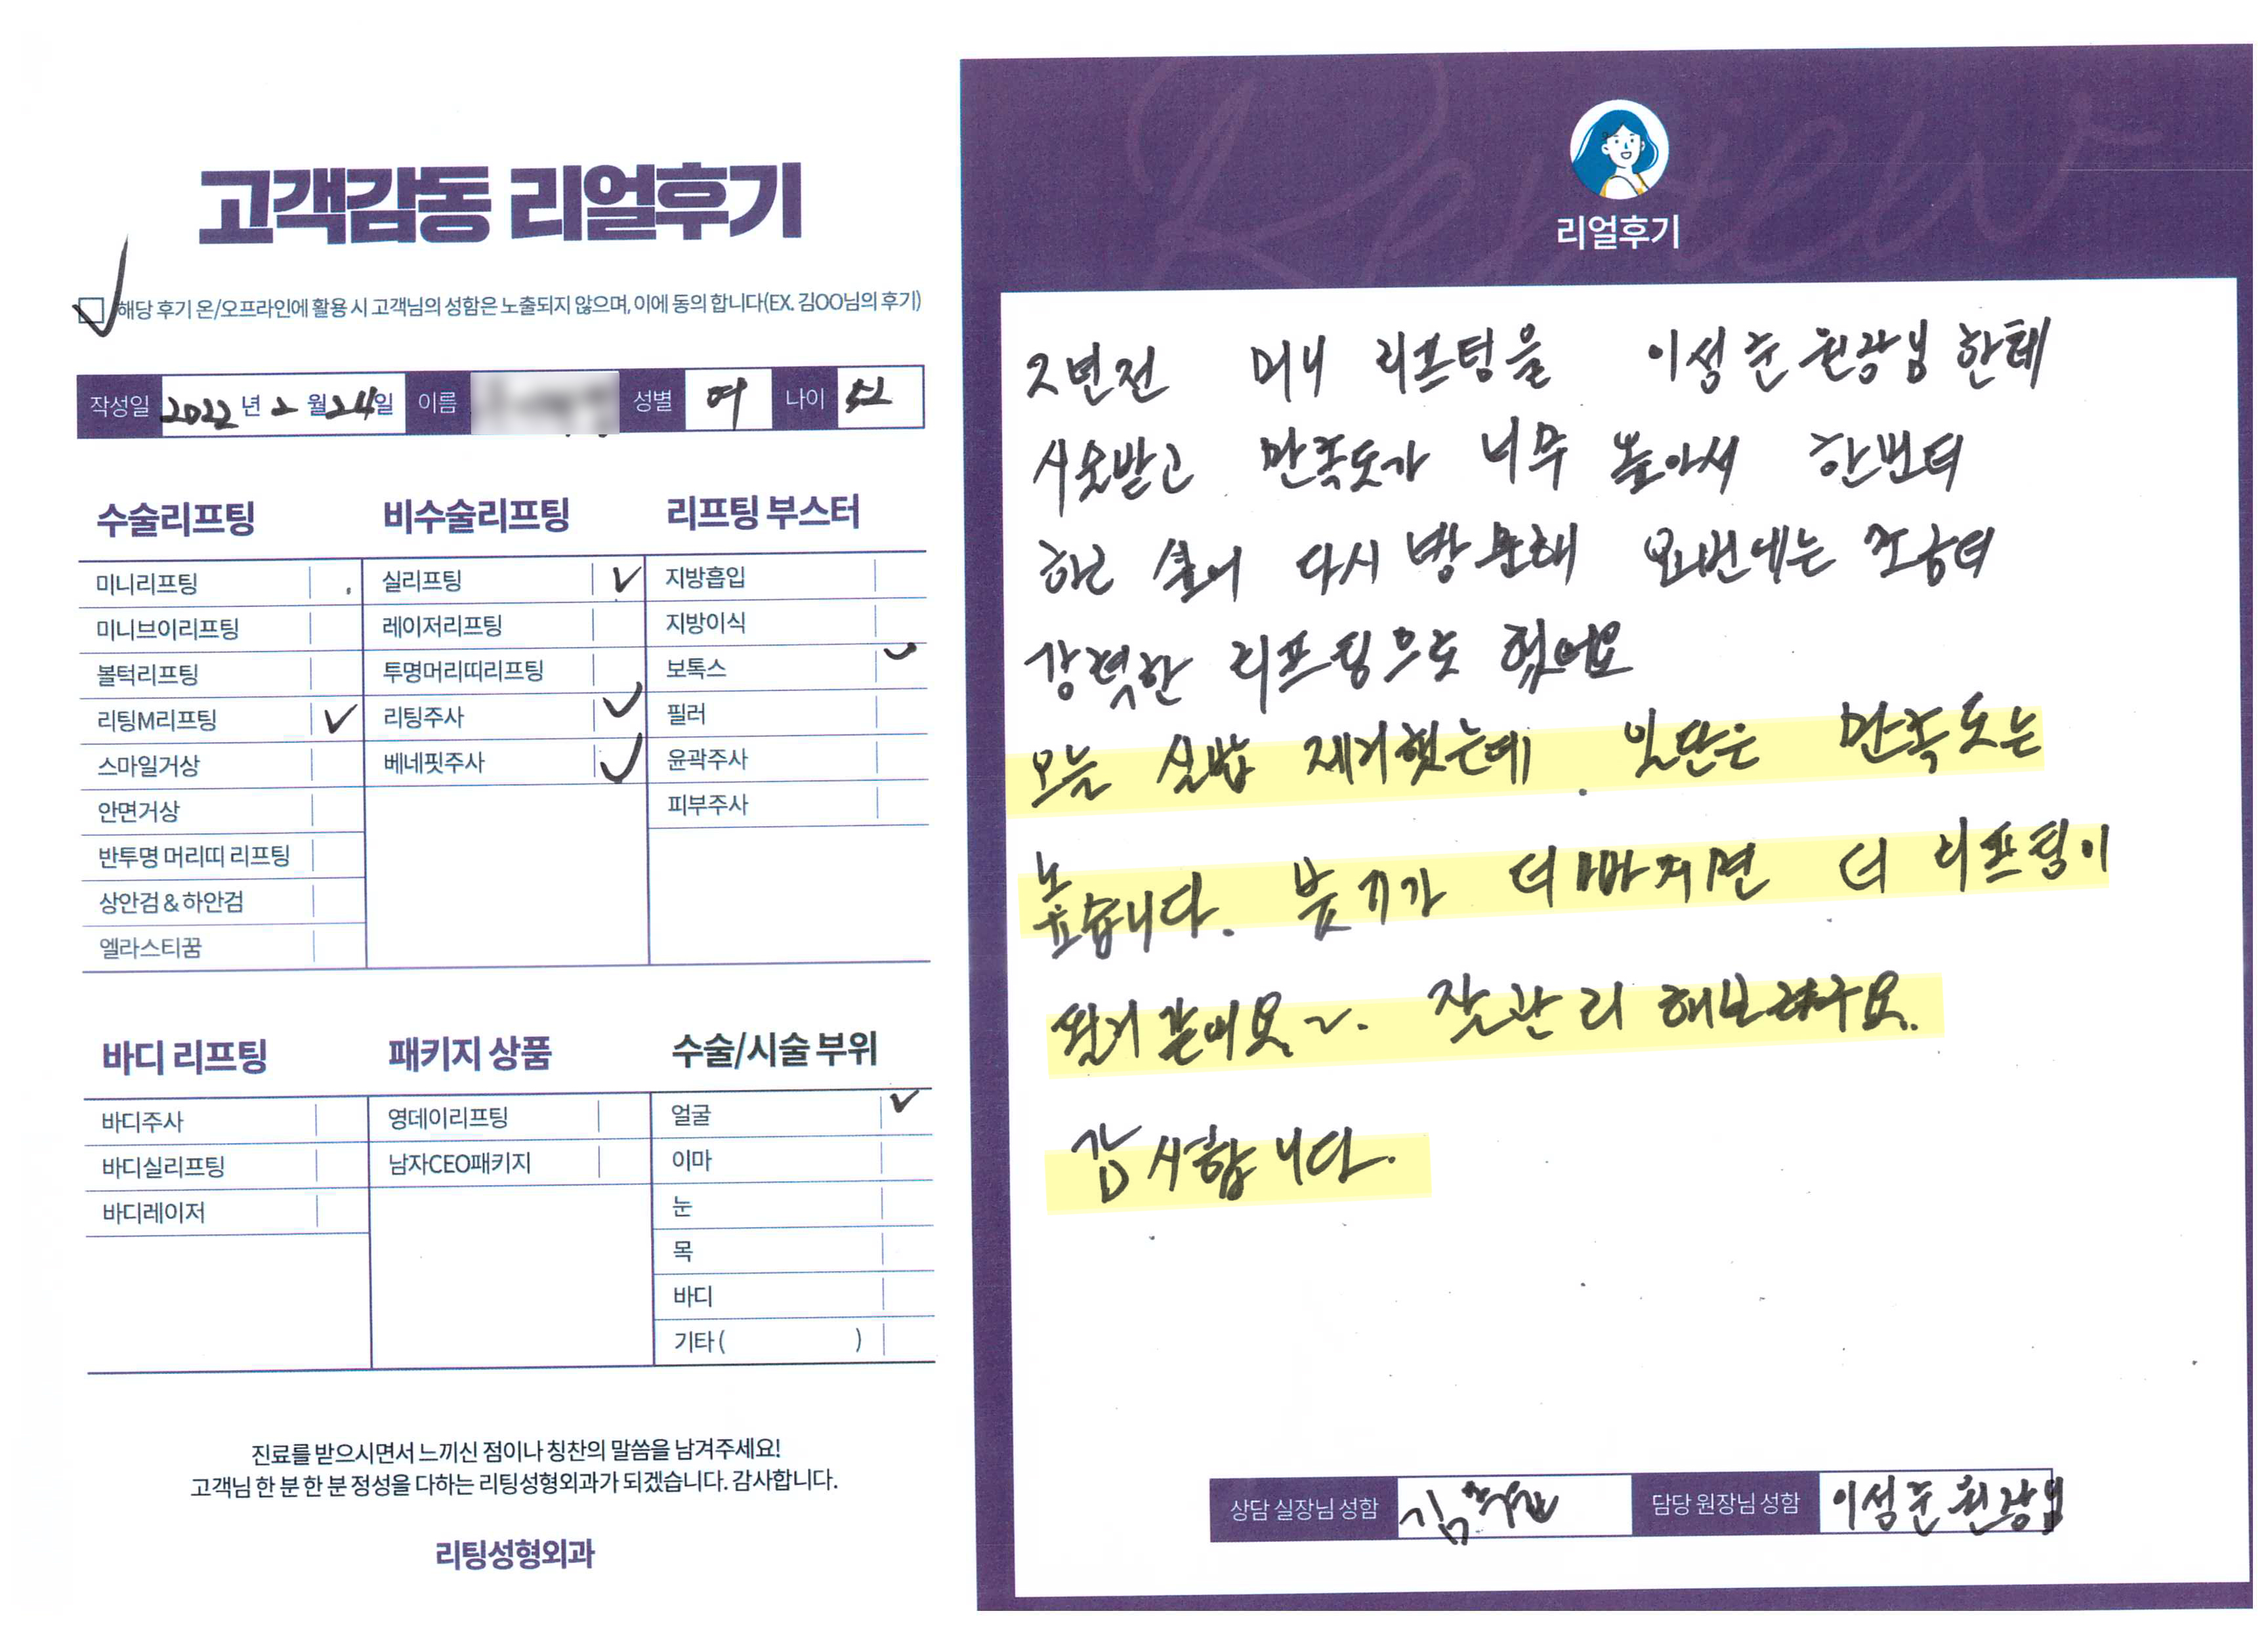 고객감동 리얼후기
해당 후기 온/오프라인에 활용 시 고객님의 성함은 노출되지 않으며, 이에 동의 합니다(EX. 김OO님의 후기)
작성일 2022년 2월 24일 이름 성별 여 나이 52
수술리프팅
미니리프팅
미니브이리프팅
볼턱리프팅
리팅M리프팅
스마일거상
안면거상
반투명 머리띠 리프팅
상안검 & 하안검
엘라스티꿈
비수술리프팅
실리프팅
레이저리프팅
투명머리띠리프팅
리팅주사
베네핏주사
리프팅 부스터
지방흡입
지방이식
보톡스
필러
윤곽주사
피부주사
바디 리프팅
바디주사
바디실리프팅
바디레이저
패키지 상품
영데이리프팅
남자CEO패키지
수술/시술 부위
얼굴
이마
눈
목
바디
기타 ( )
진료를 받으시면서 느끼신 점이나 칭찬의 말씀을 남겨주세요!
고객님 한 분 한 분 정성을 다하는 리팅성형외과가 되겠습니다. 감사합니다.
리팅성형외과
Review
리얼후기
2년전 미니 리프팅을 이성준 원장님 한테
시술받고 만족도가 너무 높아서 한번더
하고 싶어 다시 방문해 요번에는 조금더
강력한 리프팅으로 했어요
오늘 실밥 제거했는데 일단은 만족도는
높습니다. 붓기가 더 빠지면 더 리프팅이
될거 같아요~. 잘 관리 해보려구요.
감사합니다.
상담 실장님 성함 김 담당 원장님 성함 이성준 원장님